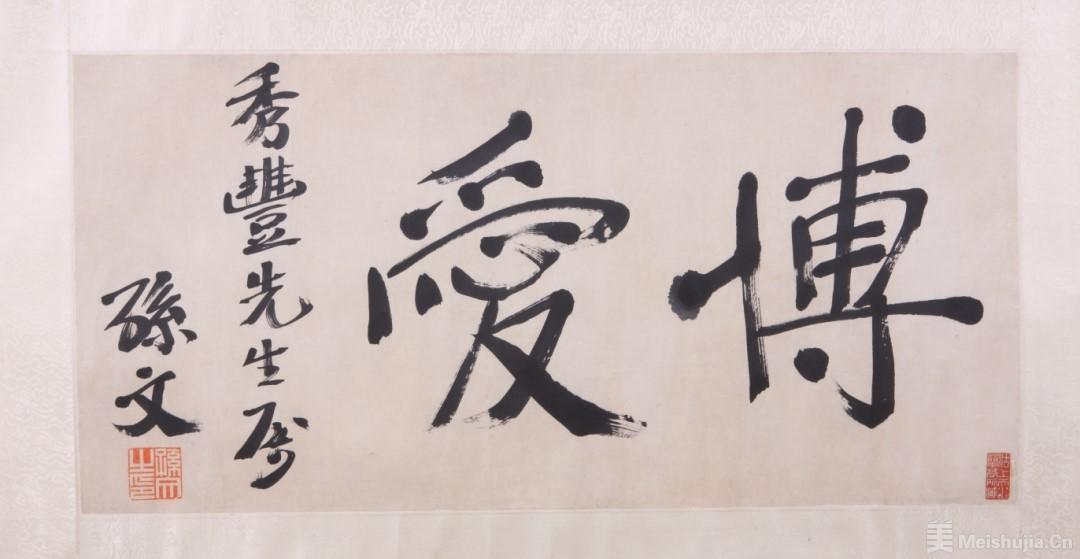 博愛
秀豐先生屬
孫文
孫文之印
美 Meishujia.Cn